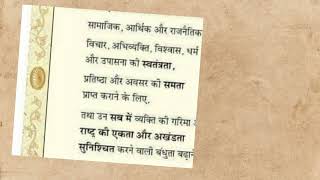 सामाजिक, आर्थिक और राजनैतिक
विचार, अभिव्यक्ति, विश्वास, धर्म
और उपासना की स्वतंत्रता,
प्रतिष्ठा और अवसर की समता
प्राप्त कराने के लिए,
तथा उन सब में व्यक्ति की गरिमा
राष्ट्र की एकता और अखंडता
सुनिश्चित करने वाली बंधुता बढ़ाने